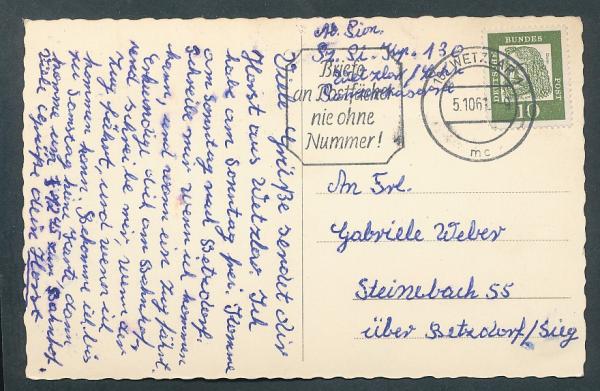 Viele Grüße sendet dir
Horst aus Wetzlar. Ich
habe am Sonntag frei, komme
am Sonntag nach Betzdorf.
Schreibe mir wenn ich kommen
kann, und wann ein Zug fährt.
Erkundige dich am Bahnhof
und schreibe mir, wenn der
Zug fährt, und wenn ich
kommen kann. Bekomme ich bis
Samstag keine Karte, dann
komme um zum Bahnhof.
Viele Grüße dein Horst
Abs. Pion.
Kp. 130
Wetzlar/Lahn
Briefe
an Postfächer
nie ohne
Nummer!
WETZLAR
5.10.61
mc
DEUTSCHE BUNDESPOST
10
An Frl.
Gabriele Weber
Steinebach 55
über Betzdorf/Sieg